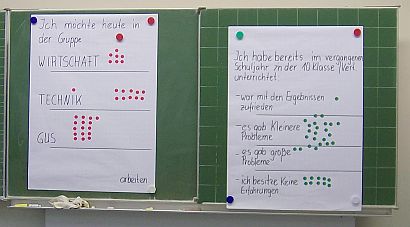 Ich möchte heute in
der Gruppe
WIRTSCHAFT
TECHNIK
GUS
arbeiten
Ich habe bereits im vergangenen
Schuljahr in der 10. Klasse
unterrichtet.
- war mit den Ergebnissen
zufrieden
- es gab kleinere
Probleme
- es gab große
Probleme
- ich besitze keine
Erfahrungen